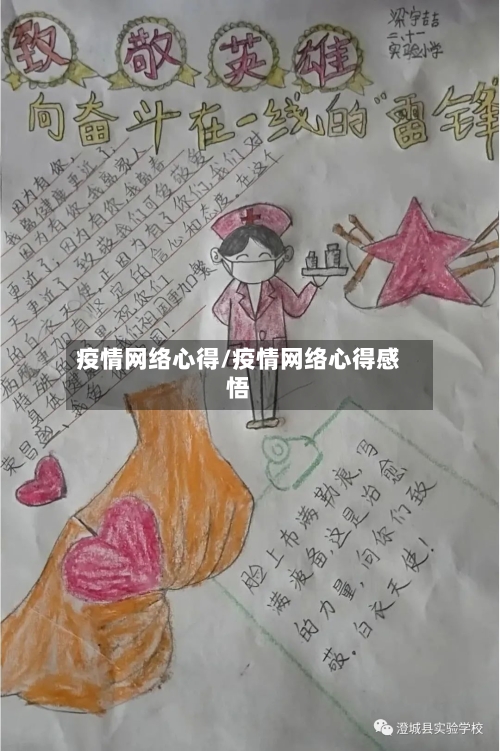 致敬英雄
梁宇喆
二、十一
实验小学
向奋斗在一线的"雷锋
因为有你,
我离健康更近了,
因为有你,我离家人
更近了;因为有你,我离春
天更近了。致敬我们可爱敬爱
的白衣天使,正因为有了你们,我们对
病魔更加有坚定的信心和态度。在这个
疫情网络心得/疫情网络心得感
悟
脸上布满勒痕,写
满疲备,这是治愈
的力量,向你们致
敬。白衣天使!
澄城县实验学校